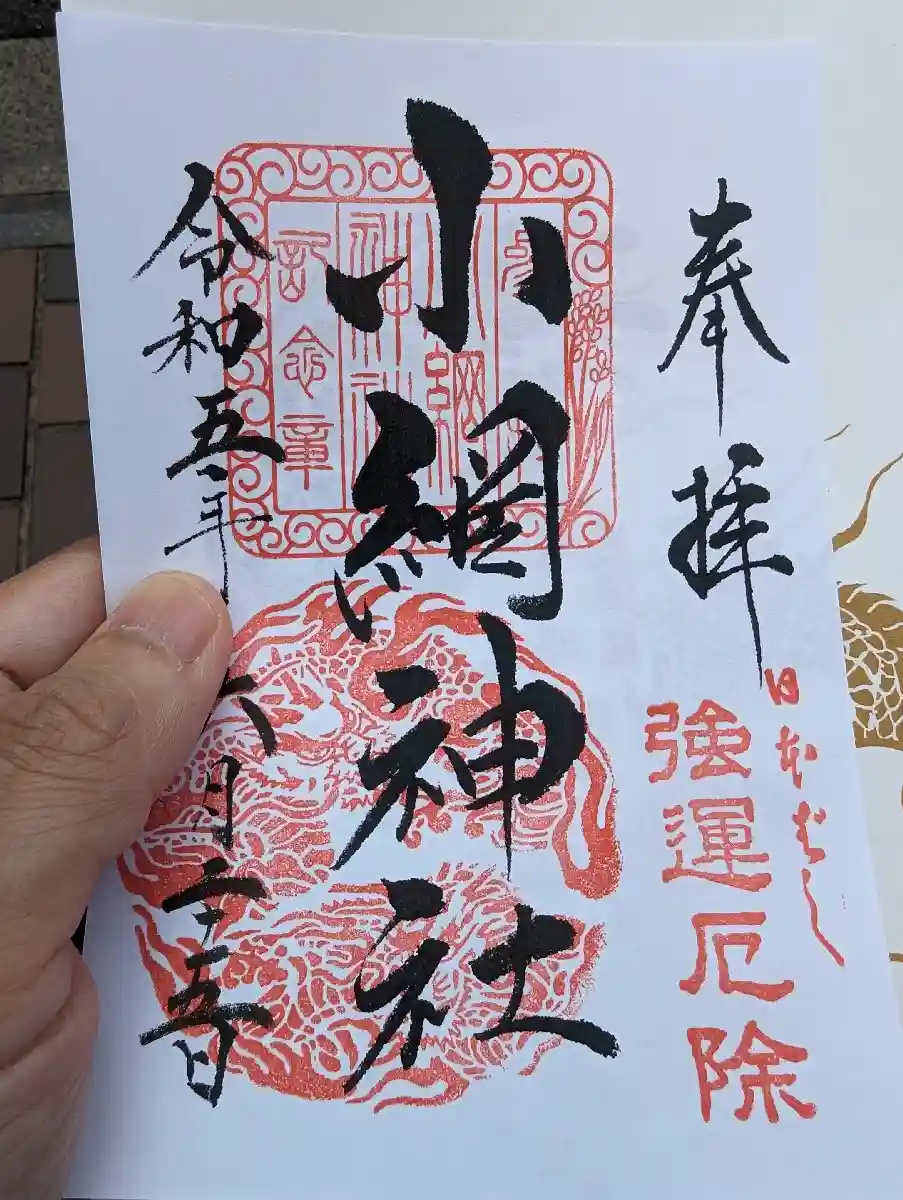 奉拝
日本ばし
強運厄除
小網神社
令和五年六月二十五日
小網
神社
記念章